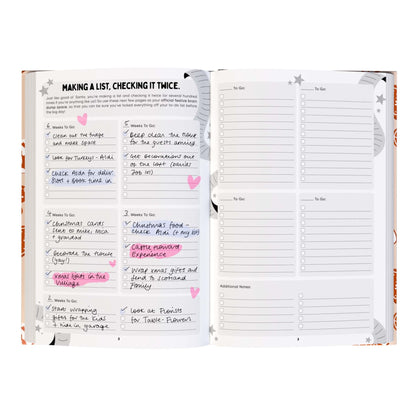 MAKING A LIST, CHECKING IT TWICE.
Just like good ol' Santa, you're making a list and checking it twice (or several hundred
times if you're anything like us)! So use these next few pages as your official festive brain
dump space, so that you can be sure you've ticked everything off your to-do list before
the big day!
6 Weeks To Go:
Clean out the fridge
and make space
Look for Turkeys - Aldi
Check Asda for deliv.
slot + book time in
5 Weeks To Go:
Deep clean the
for the guests coming
Get decorations out
of the loft (Davids
Job lol)
4 Weeks To Go:
Christmas cards
sent to Mike,
+ grandad
Decorate the
(yay!)
Xmas lights in the
Village
3 Weeks To Go:
Christmas food -
check Aldi (+ my list)
Cattle
Experience
Wrap xmas gifts and
send to Scotland
Family
2 Weeks To Go:
Start wrapping
gifts for the kids
+ hide in garage
Look at Florists
for Table-Flowers
To Go:
To Go:
To Go:
To Go:
Additional Notes: